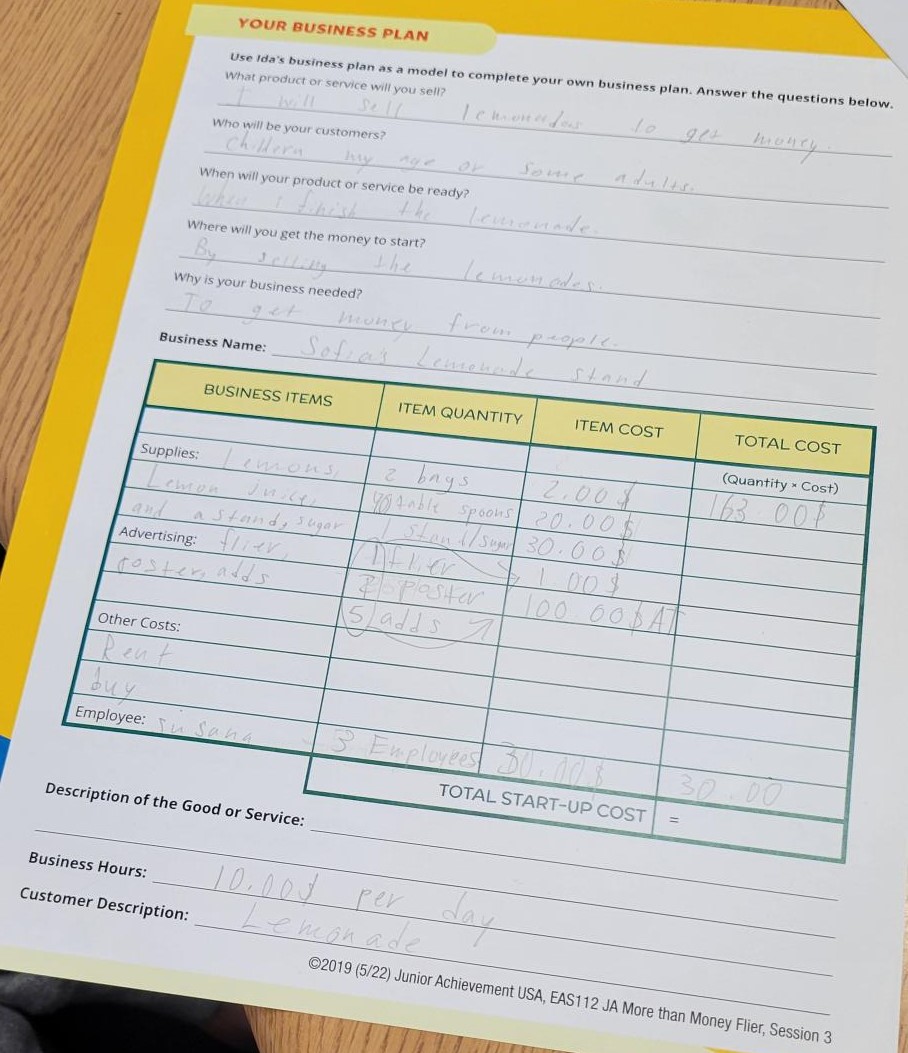 YOUR BUSINESS PLAN
Use Ida's business plan as a model to complete your own business plan. Answer the questions below.
What product or service will you sell?
I will sell lemonades to get money.
Who will be your customers?
Childern my age or some adults.
When will your product or service be ready?
When I finish the lemonade.
Where will you get the money to start?
By selling the lemonades.
Why is your business needed?
To get money from people.
Business Name: Sofias Lemonade stand
BUSINESS ITEMS ITEM QUANTITY ITEM COST TOTAL COST
(Quantity × Cost)
Supplies: Lemons, 2 bags 2.00$ 163.00$
Lemon juice, table spoons 20.00$
and a stand, sugar 1 stand/sugar 30.00$
Advertising: flier, 1 flier 1.00$
poster, adds poster 100.00$
5 adds
Other Costs:
Rent
buy
Employee: Susana 3 Employees 30.00$ 30.00
TOTAL START-UP COST =
Description of the Good or Service:
Business Hours: 10.00$ per day
Customer Description: Lemonade
©2019 (5/22) Junior Achievement USA, EAS112 JA More than Money Flier, Session 3